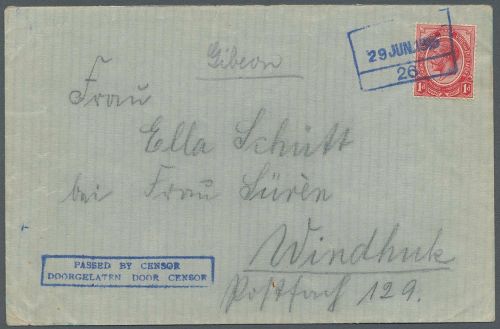 Gibeon
29 JUN.
26
1d 1d
Frau
Ella Schütt
bei Frau Lürèn
Windhuk
Postfach 129.
PASSED BY CENSOR
DOORGELATEN DOOR CENSOR